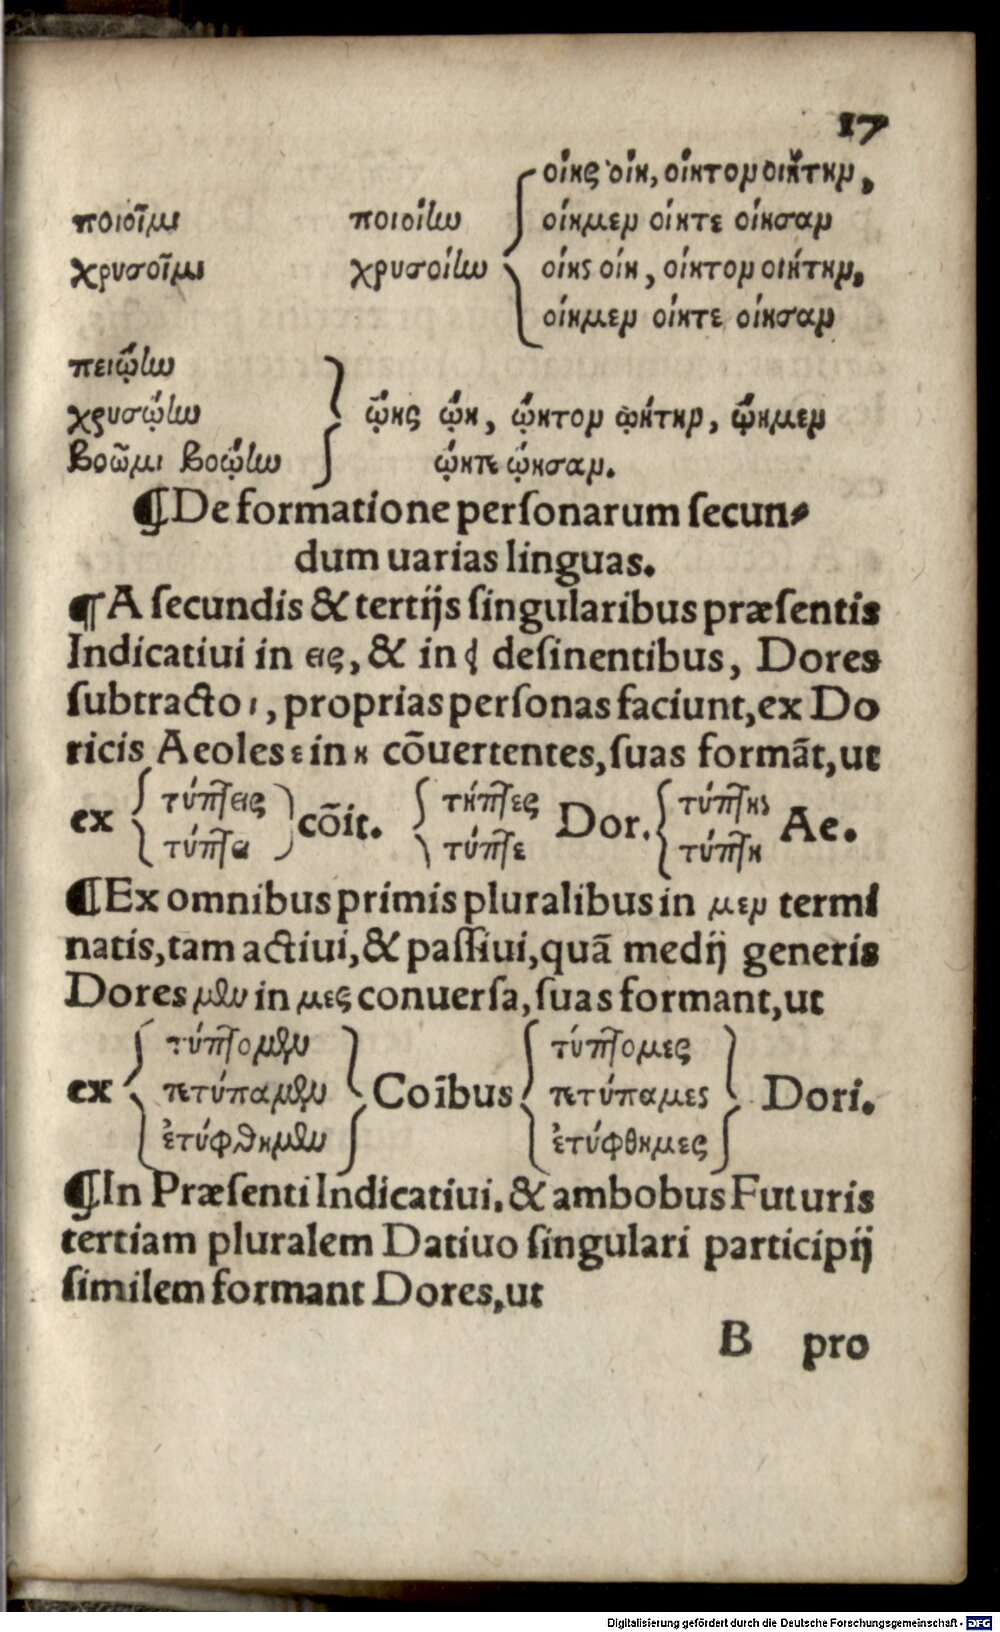 17
οἴης οἴη, οἴητομ οιήτημ,
ποιοῖμι ποιοίην οίημεν οίητε οίησαν
χρυσοῖμι χρυσοίην οίης οίη, οίητον οιήτην,
οίημεν οίητε οίησαν
πειῴην
χρυσῴην ῴης ῴη, ῴητον ῳήτην, ῴημεν
βοῶμι βοῴην ῴητε ῴησαν.
¶De formatione personarum secun-
dum uarias linguas.
¶A secundis & tertijs singularibus præsentis
Indicatiui in εις, & in ει desinentibus, Dores
subtracto ι, proprias personas faciunt, ex Do
ricis Aeoles ε in η cōuertentes, suas formāt, ut
τύπτεις τήπτες τύπτης
ex cōit. Dor. Ae.
τύπτει τύπτε τύπτη
¶Ex omnibus primis pluralibus in μεν termi
natis, tam actiui, & passiui, quā medij generis
Dores μεν in μες conuersa, suas formant, ut
τύπτομεν τύπτομες
ex πετύπαμεν Coībus πετύπαμες Dori.
ἐτύφθημεν ἐτύφθημες
¶In Præsenti Indicatiui, & ambobus Futuris
tertiam pluralem Datiuo singulari participij
similem formant Dores, ut
B pro
Digitalisierung gefördert durch die Deutsche Forschungsgemeinschaft - DFG